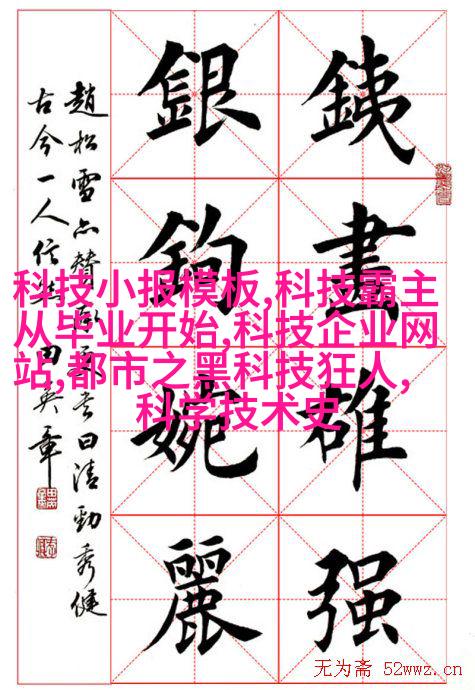 銕畫雄强
銀鉤婉麗
趙松雪亦贊曰清勁秀健
古今一人信 田英章
科技小报模板,科技霸主
从毕业开始,科技企业网
站,都市之黑科技狂人,
科学技术史
无为斋 52wwz.cn